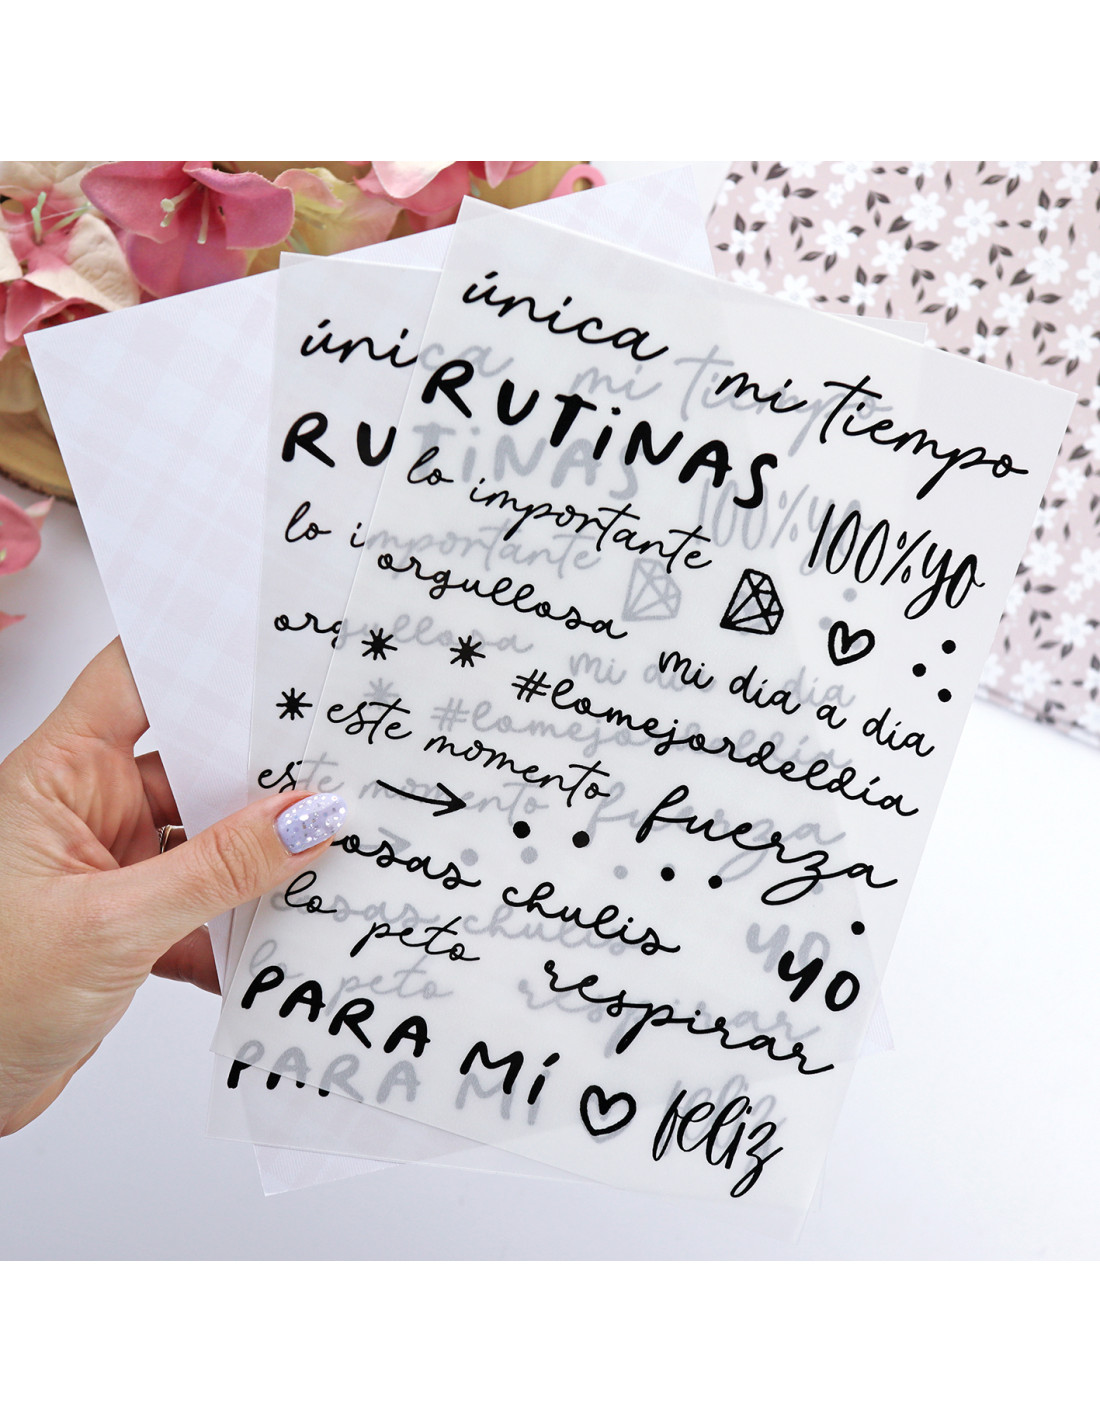 única
mi tiempo
RUTiNAS
lo importante
100%yo
orgullosa
mi día a día
#lomejordeldía
este momento
fuerza
cosas chulis
lo peto
yo
respirar
PARA Mí
feliz
úni
RU
lo i
org
es
PA